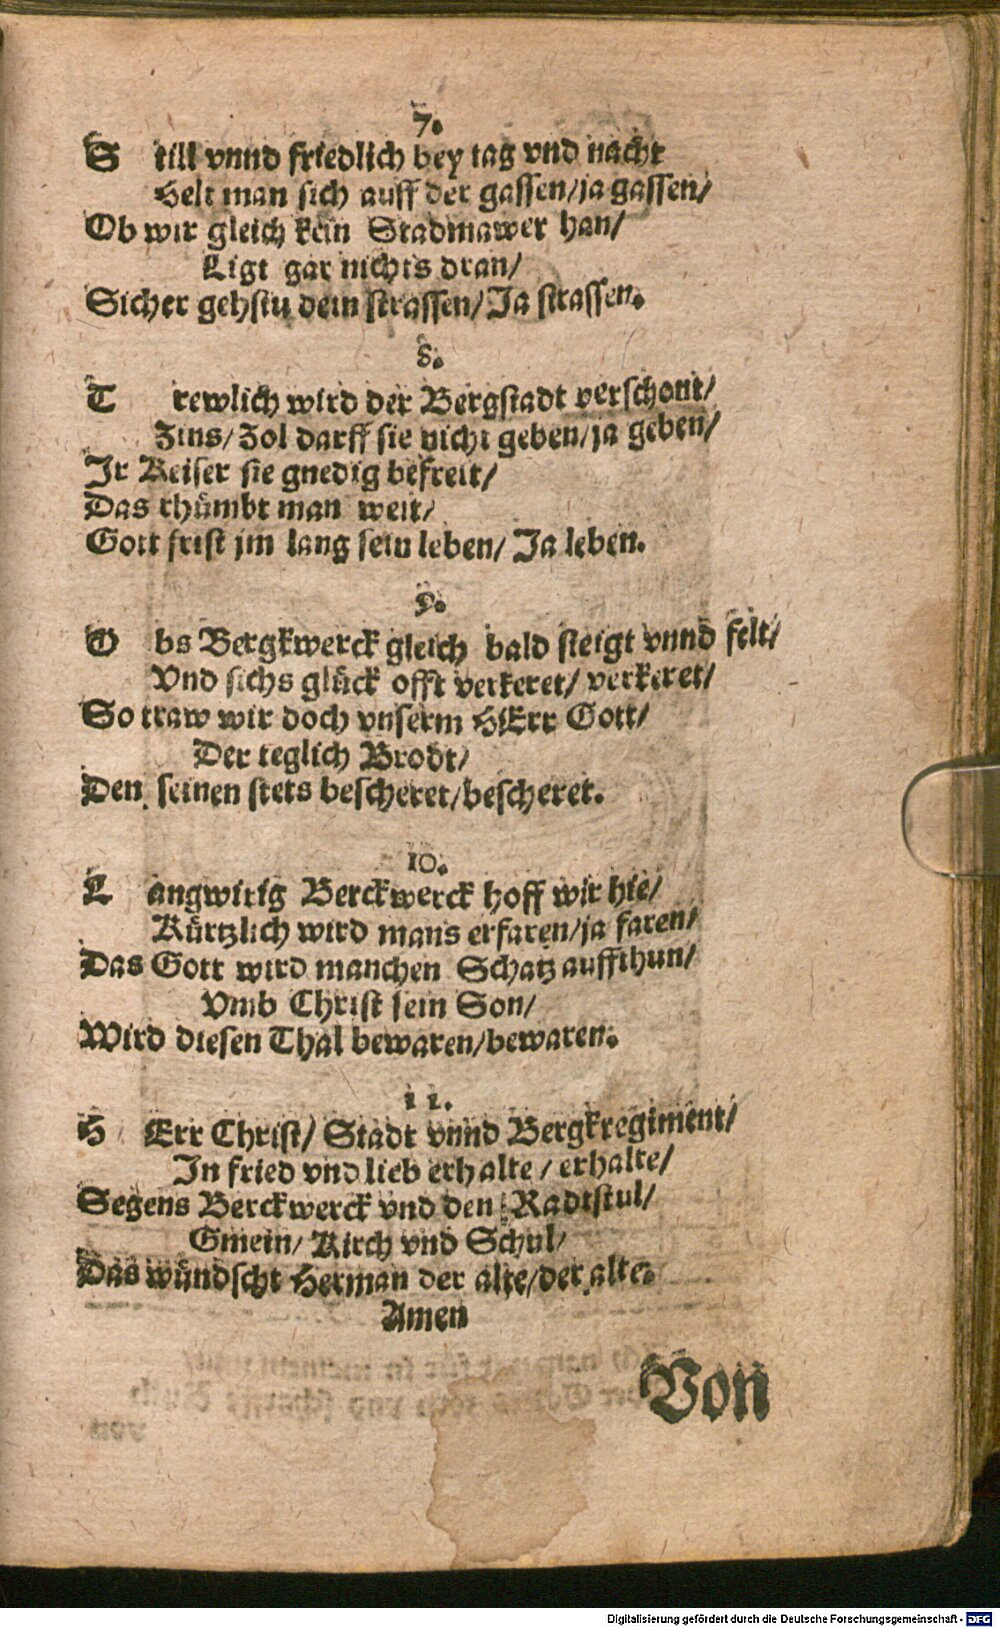 7.
Still vnnd friedlich bey tag vnd nacht
Helt man sich auff der gassen/ja gassen/
Ob wir gleich kein Stadmawer han/
Ligt gar nichts dran/
Sicher gehstu dein strassen/Ja strassen.
8.
Trewlich wird der Bergstadt verschont/
Zins/Zol darff sie nicht geben/ja geben/
Jr Keiser sie gnedig befreit/
Das rhümbt man weit/
Gott frist jm lang sein leben/Ja leben.
9.
Obs Bergkwerck gleich bald steigt vnnd felt/
Vnd sichs glück offt verkeret/verkeret/
So traw wir doch vnserm HErr Gott/
Der teglich Brodt/
Den seinen stets bescheret/bescheret.
10.
Langwirig Berckwerck hoff wir hie/
Kürtzlich wird mans erfaren/ja faren/
Das Gott wird manchen Schatz auffthun/
Vmb Christ sein Son/
Wird diesen Thal bewaren/bewaren.
11.
HErr Christ/Stadt vnnd Bergkregiment/
In fried vnd lieb erhalte/erhalte/
Segens Berckwerck vnd den Radtstul/
Gmein/Kirch vnd Schul/
Das wündscht Herman der alte/der alte.
Amen
Von
Digitalisierung gefördert durch die Deutsche Forschungsgemeinschaft - DFG